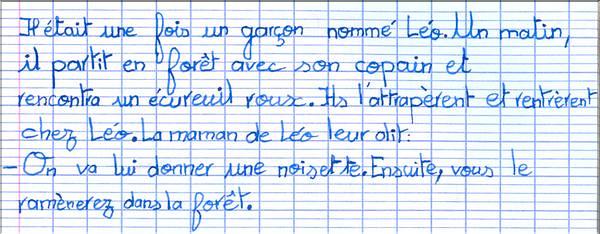 Il était une fois un garçon nommé Léo. Un matin,
il partit en forêt avec son copain et
rencontra un écureuil roux. Ils l'attrapèrent et rentrèrent
chez Léo. La maman de Léo leur dit:
- On va lui donner une noisette. Ensuite, vous le
ramènerez dans la forêt.